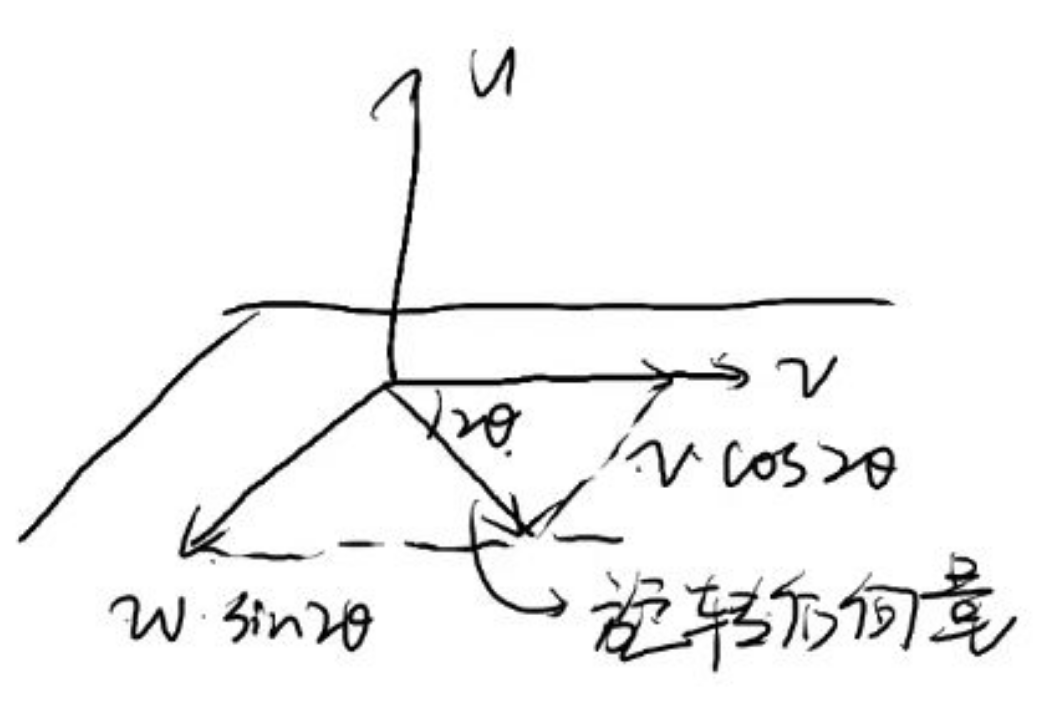 u
v
2θ
v·cos2θ
w·sin2θ
旋转后向量